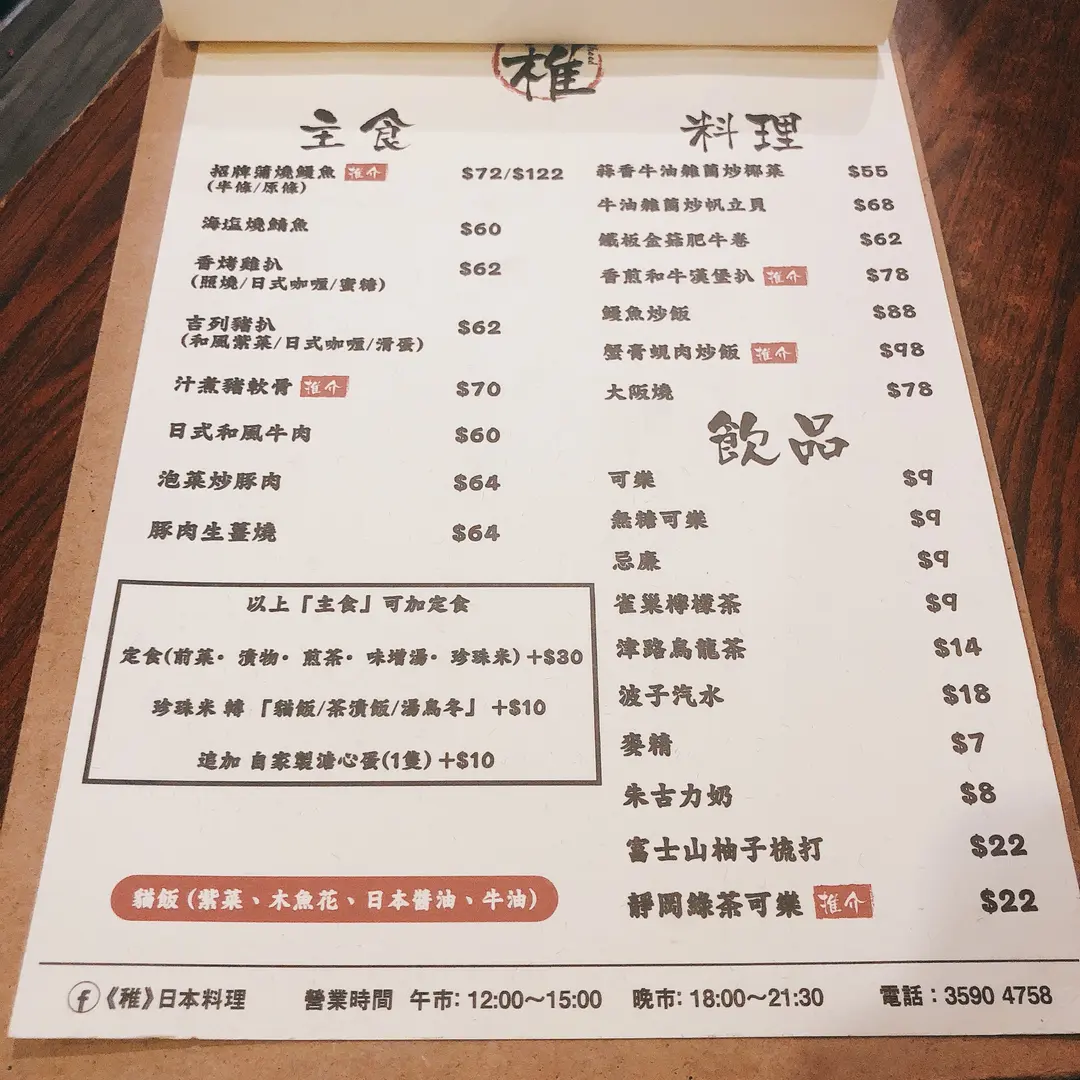 稚
主食
招牌蒲燒鰻魚 推介 $72/$122
(半條/原條)
海塩燒鯖魚 $60
香烤雞扒 $62
(照燒/日式咖喱/蜜糖)
吉列豬扒 $62
(和風紫菜/日式咖喱/滑蛋)
汁煮豬軟骨 推介 $70
日式和風牛肉 $60
泡菜炒豚肉 $64
豚肉生薑燒 $64
以上「主食」可加定食
定食(前菜・漬物・煎茶・味增湯・珍珠米) +$30
珍珠米 轉 「貓飯/茶漬飯/湯烏冬」 +$10
追加 自家製溏心蛋(1隻) +$10
貓飯 (紫菜、木魚花、日本醬油、牛油)
料理
蒜香牛油雜菌炒椰菜 $55
牛油雜菌炒帆立貝 $68
鐵板金菇肥牛卷 $62
香煎和牛漢堡扒 推介 $78
鰻魚炒飯 $88
蟹膏蜆肉炒飯 推介 $98
大阪燒 $78
飲品
可樂 $9
無糖可樂 $9
忌廉 $9
雀巢檸檬茶 $9
津路烏龍茶 $14
波子汽水 $18
麥精 $7
朱古力奶 $8
富士山柚子梳打 $22
靜岡綠茶可樂 推介 $22
f《稚》日本料理 營業時間 午市: 12:00～15:00 晚市: 18:00～21:30 電話：3590 4758